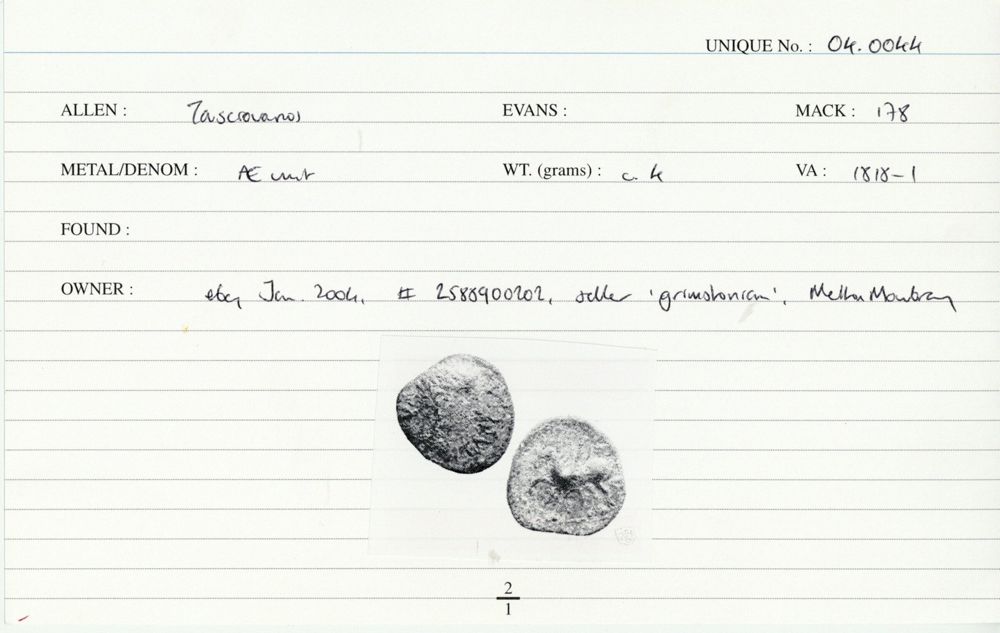 UNIQUE No. : 04.0044
ALLEN : Tasciovanos EVANS : MACK : 178
METAL/DENOM : Æ unit WT. (grams) : c. 4 VA : 1818-1
FOUND :
OWNER : ebay Jan. 2004, # 2588900202, seller 'grimstonian', Melton Mowbray
2
1